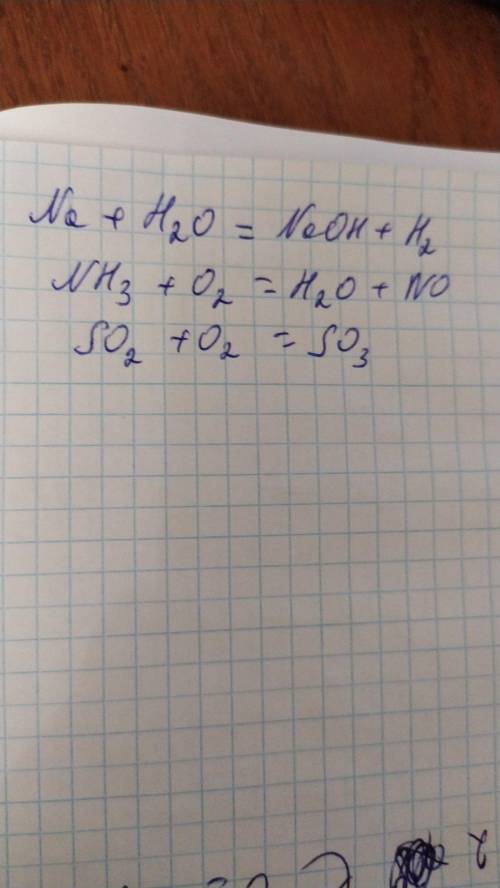 Na + H₂O = NaOH + H₂
NH₃ + O₂ = H₂O + NO
SO₂ + O₂ = SO₃